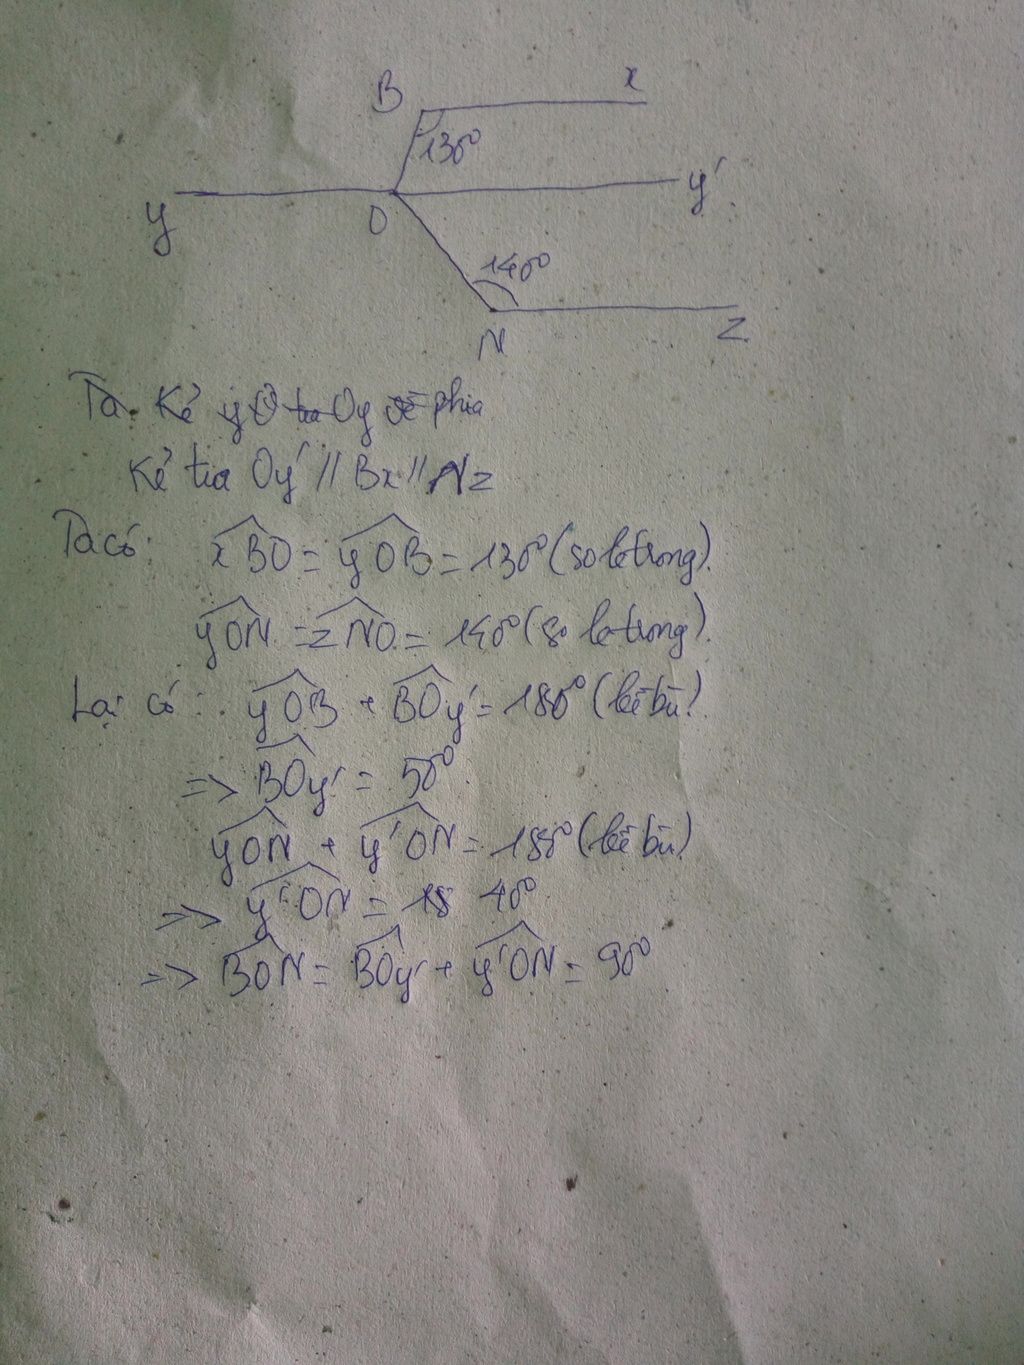 B x
130°
y O y'
140°
N z
Ta. Kẻ yO tia Oy về phía
Kẻ tia Oy' // Bx // Nz
Ta có: xBO = yOB = 130° (so le trong).
yON = zNO = 140° (so le trong).
Lại có: yOB + BOy' = 180° (kề bù).
=> BOy' = 50°
yON + y'ON = 180° (kề bù)
=> y'ON = 18 40°
=> BON = BOy' + y'ON = 90°